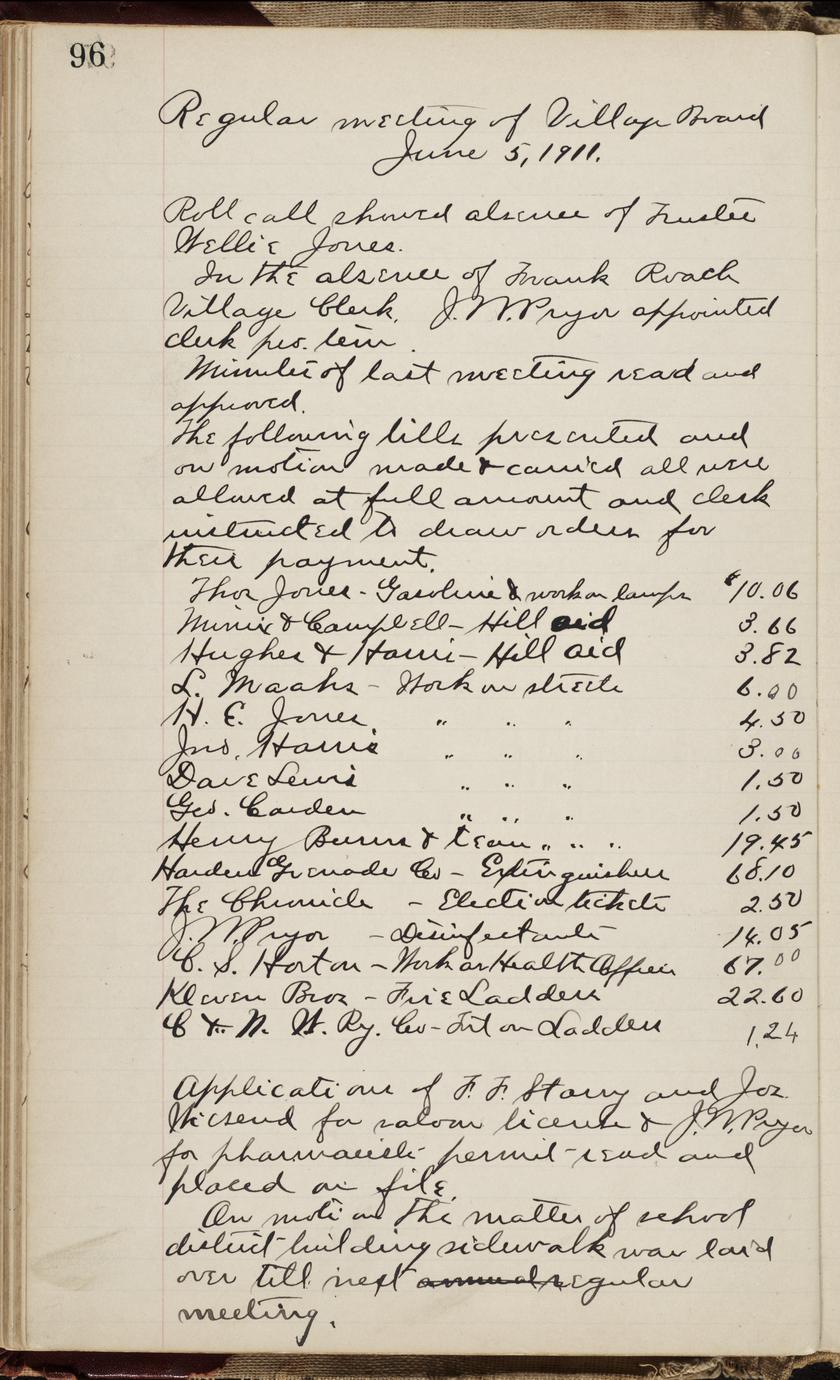 96
Regular meeting of Village Board
June 5, 1911.
Roll call showed absence of Trustee
Wellie Jones.
In the absence of Frank Roach
Village Clerk, J. W. Pryor appointed
clerk pro. tem.
Minutes of last meeting read and
approved.
The following bills presented and
on motion made & carried all were
allowed at full amount and clerk
instructed to draw orders for
their payment.
Thos Jones - Gasoline & work on lamps $10.06
Mimix & Campbell - Hill aid 3.66
Hughes & Harris - Hill aid 3.82
L. Maahs - Work on streets 6.00
H. E. Jones " " " 4.50
Jno. Harris " " " 3.00
Dave Lewis " " " 1.50
Geo. Carden " " " 1.50
Henry Burns & team " " " 19.45
Harden Grenade Co - Extinguishers 68.10
The Chronicle - Election tickets 2.50
J. W. Pryor - Disinfectants 14.05
C. S. Horton - Work as Health Officer 67.00
Kleven Bros - Fire Ladders 22.60
C & N. W. Ry. Co - Frt on Ladders 1.24
Applications of F. F. Starry and Jos.
for saloon license & J. W. Pryor
for pharmacist permit - read and
placed on file.
On motion the matter of school
district building sidewalk was laid
over till next annual regular
meeting.